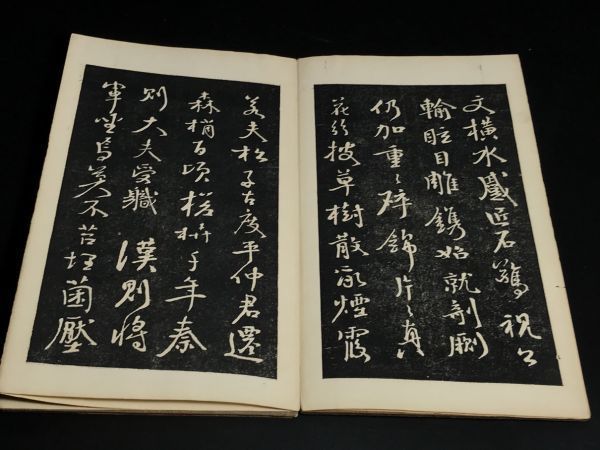 文橫水蹙匠石驚視公
輸眩目雕鐫始就剞劂
仍加重〻碎錦片〻真
花紛披草樹散亂煙霞
若夫松子古度平仲君遷
森梢百頃槎枿千年秦
則大夫受職漢則將
軍坐焉莫不苔埋菌壓